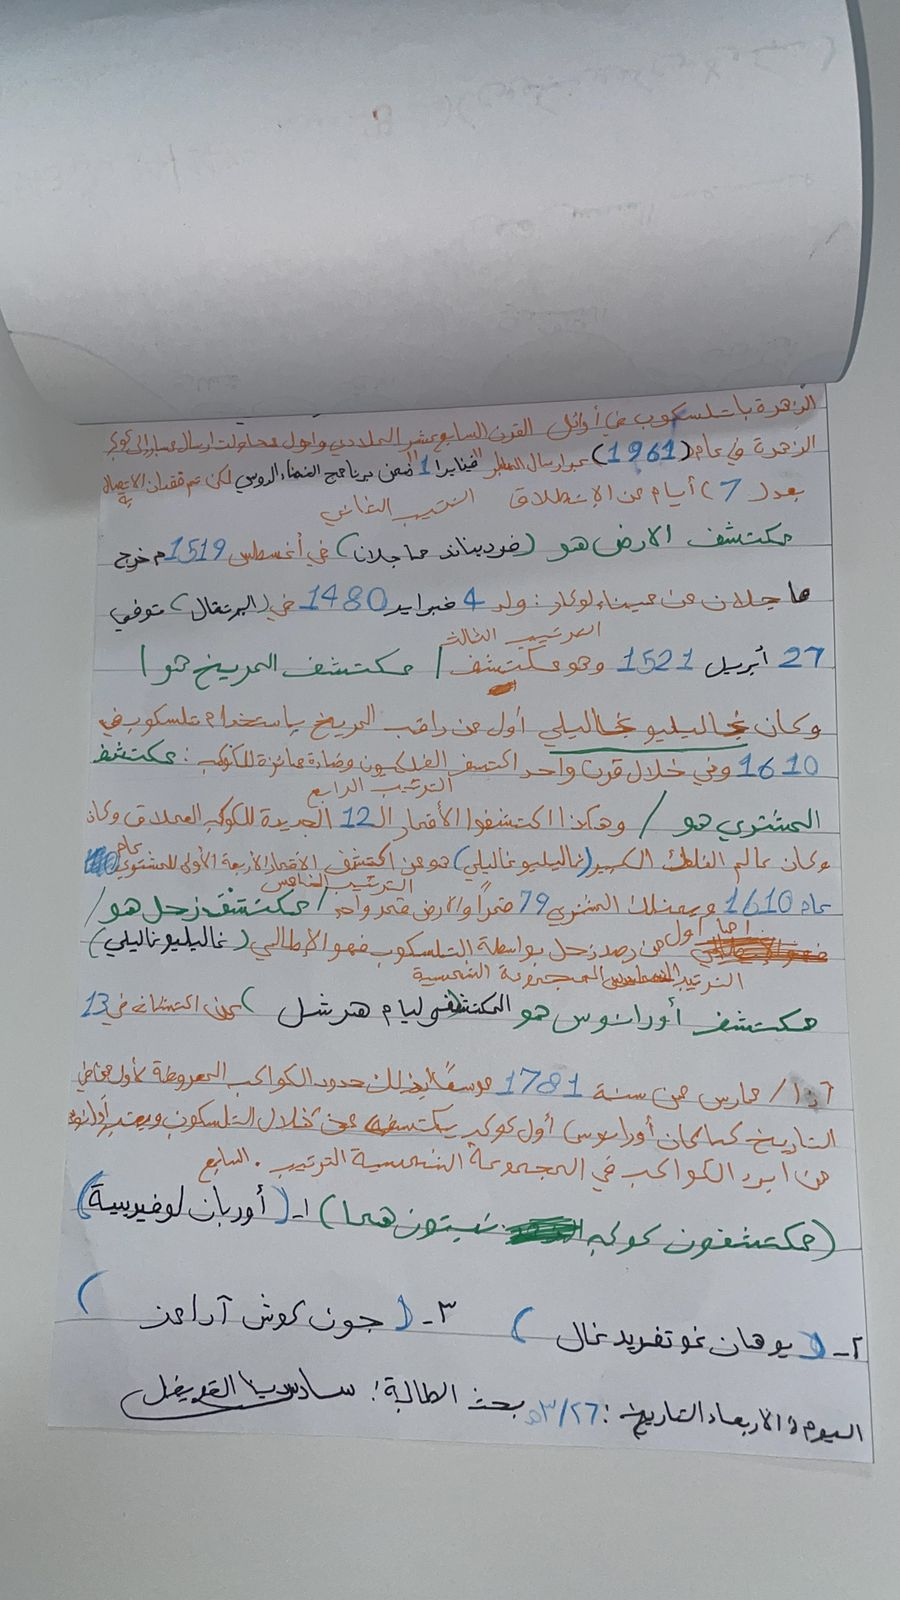 الزهرة بالتلسكوب في أوائل القرن السابع عشر الميلادي واول محاولت ارسال مسبار إلى كوكب
الزهرة في عام (1961) عبر ارسال "فينايرا 1" ضمن برنامج الفضاء الروسي لكن تم فقدان الاتصال به
بعد (7) أيام من الإنطلاق الترتيب الثاني
مكتشف الارض هو (فرديناند ماجلان) في أغسطس 1519م خرج
ماجلان من ميناء لوكار: ولد 4 فبراير 1480 في (البرتقال) توفي
الترتيب الثالث
27 أبريل 1521 وهو مكتشف / مكتشف المريخ هو /
وكان غاليليو غاليلي أول من راقب المريخ باستخدام تلسكوب في
1610 وفي خلال قرن واحد اكتشف الفلكيون وضاءة مائزة للكوكب: مكتشف
الترتيب الرابع
المشتري هو / وهكذا اكتشفوا الأقمار الـ12 الجديدة للكوكب العملاق وكان
وكان عالم الفلك الكبير (غاليليو غاليلي) هو من اكتشف الاقمار الأربعة الأولى للمشتوي عام
الترتيب الخامس
عام 1610 ويمتلك المشتري 79 قمراً والارض قمر واحد / مكتشف زحل هو /
اما اول من رصد زحل بواسطة التلسكوب فهو الإطالي (غاليليو غاليلي)
الترتيب المجموعة الشمسية
مكتشف أورانوس هو المكتشف ليام هرشل) في 13
آذار/ مارس من سنة 1781 موسعًا بذلك حدود الكواكب المعروفة لأول في
التاريخ كما كان أورانوس أول كوكب يكتشف من خلال التلسكوب ويعتبر أورانوس
من ابرد الكواكب في المجموعة الشمسية الترتيب. السابع
(مكتشفون كوكب نبتون هما) ١- (أوربان لوفيرييه)
٢- (يوهان غوتفريد غال) ٣- (جون كوش آدامز)
اليوم: الاربعاء التاريخ: ٣/٢٦ بحث الطالبة: